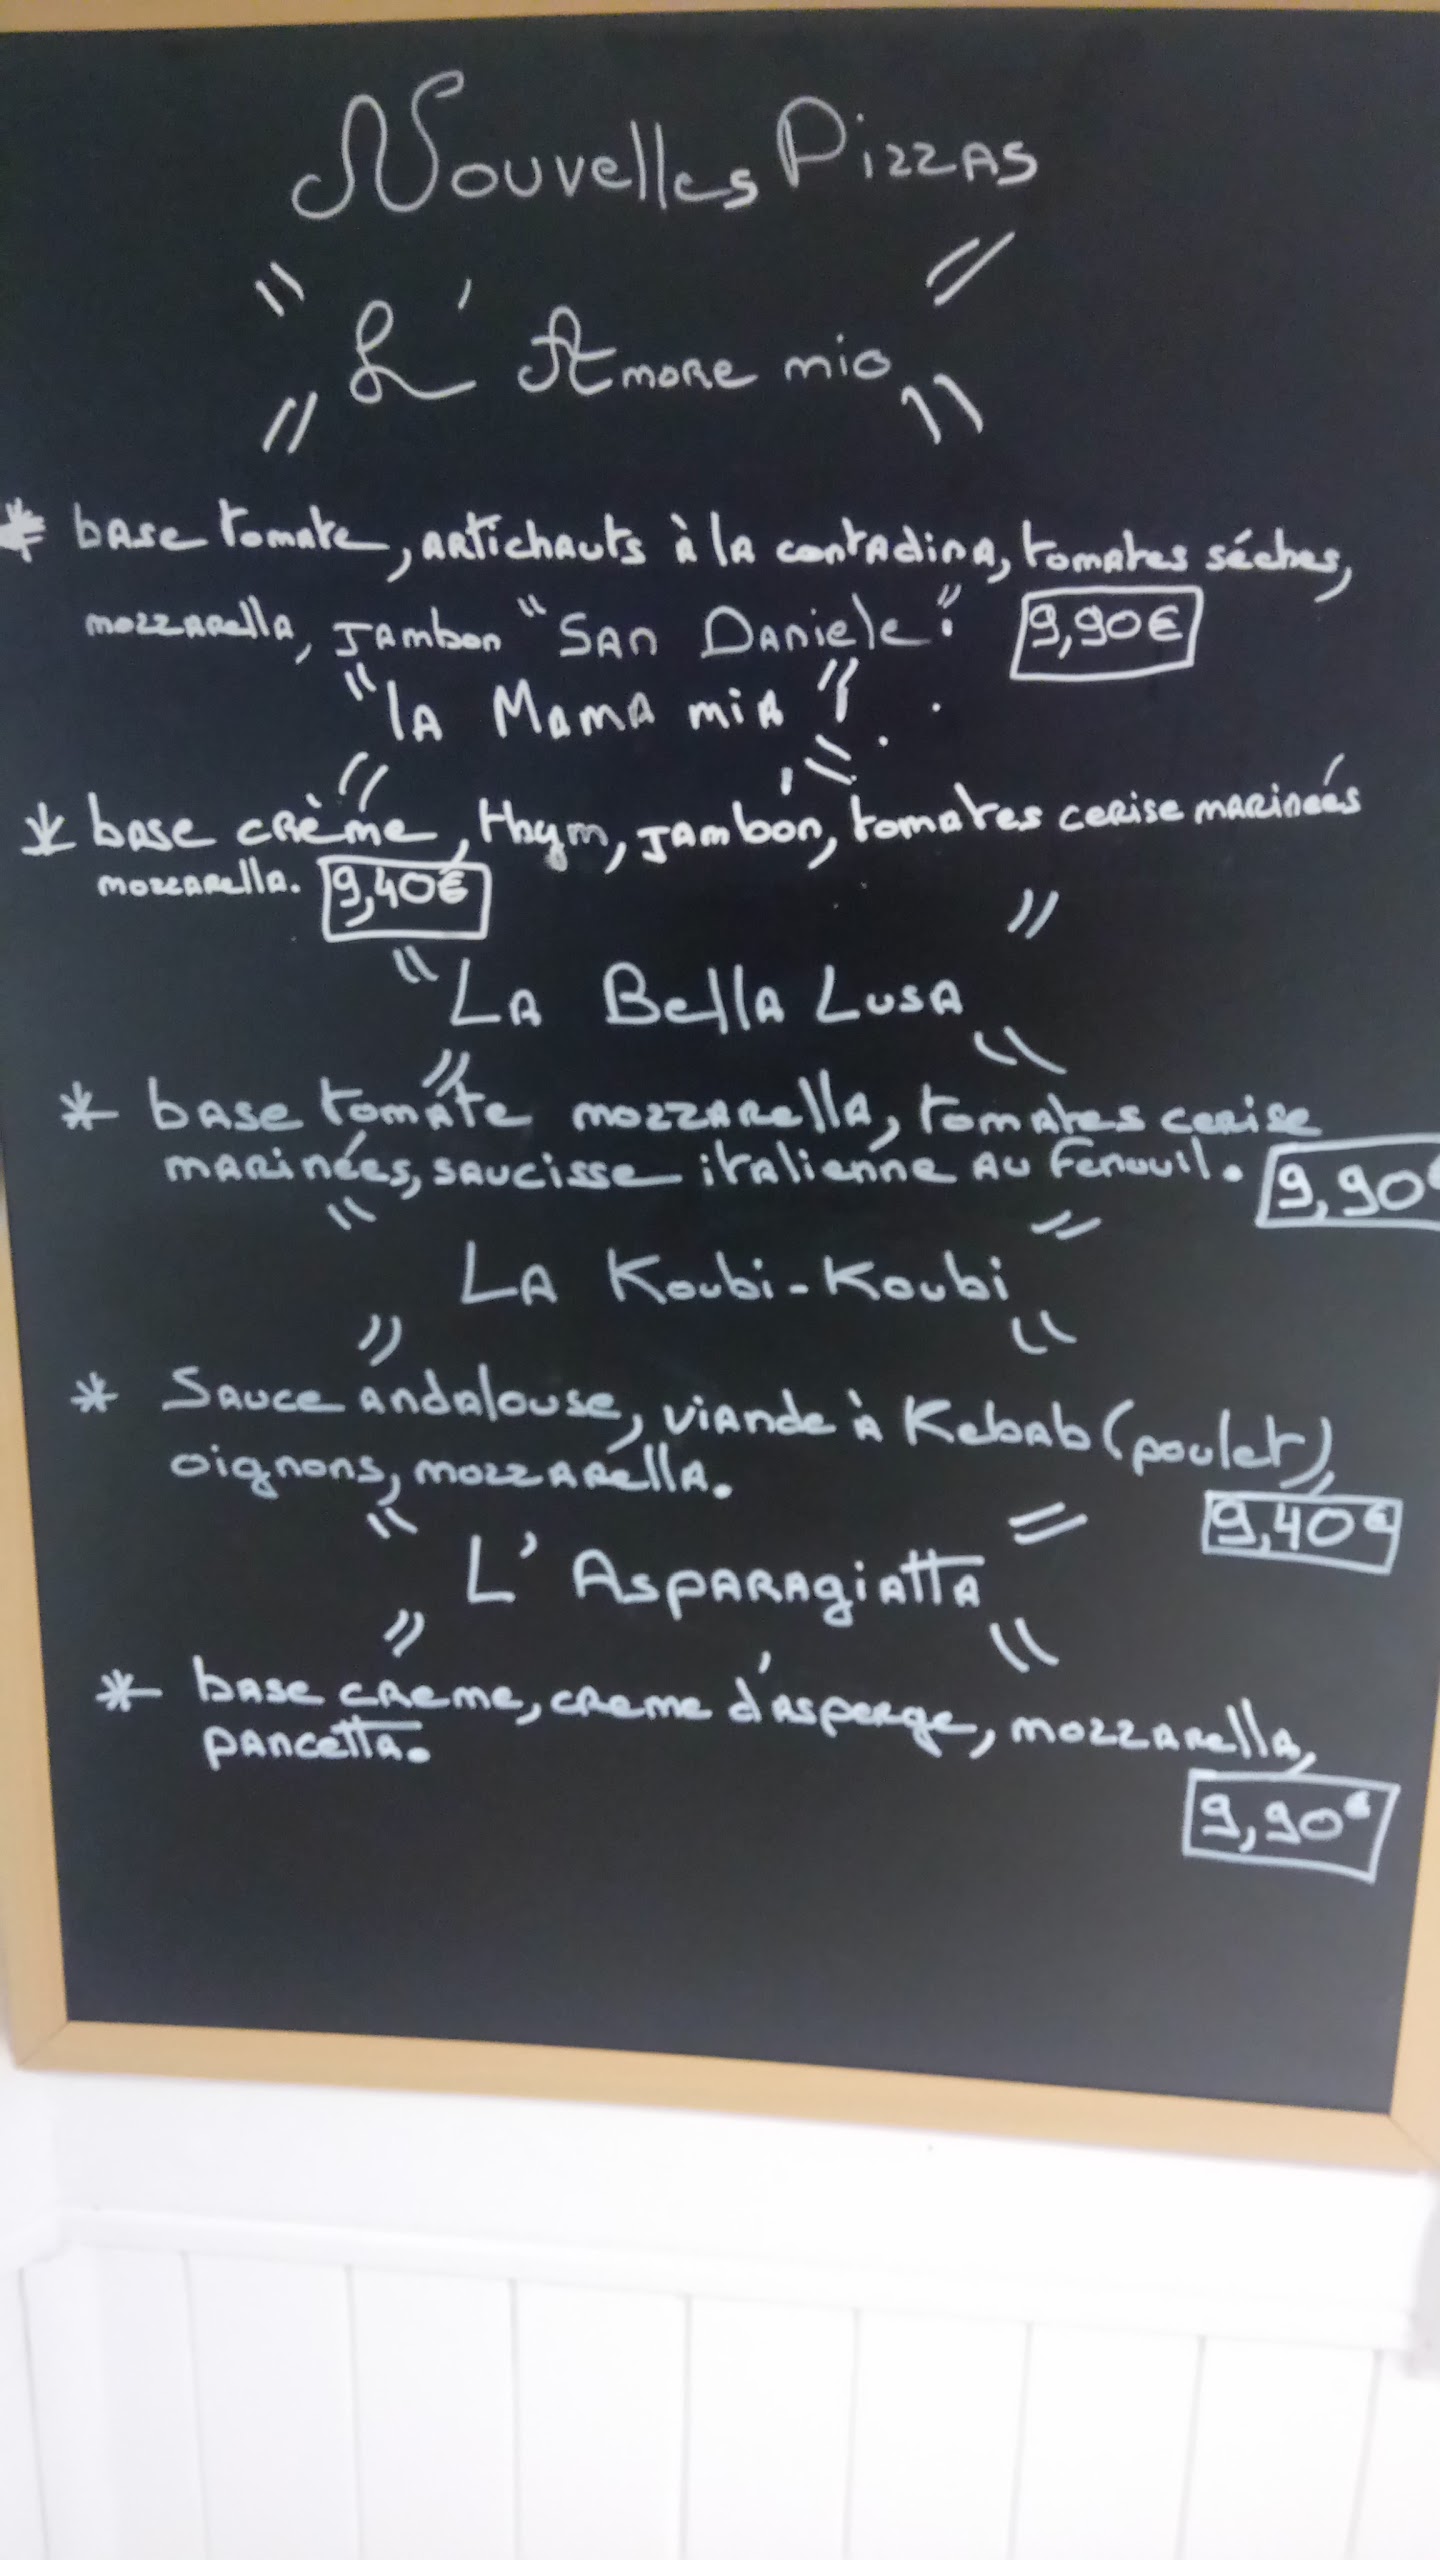 Nouvelles Pizzas
" L'Amore mio "
* base tomate, artichauts à la contadina, tomates séches,
mozzarella, jambon "San Daniele". 9,90€
"la Mama mia"
* base crème, thym, jambon, tomates cerise marinées
mozzarella. 9,40€
"La Bella Lusa"
* base tomate mozzarella, tomates cerise
marinées, saucisse italienne au fenouil. 9,90€
"La Koubi-Koubi"
* Sauce andalouse, viande à Kebab (poulet),
oignons, mozzarella.
9,40€
"L'Asparagiatta"
* base creme, creme d'asperge, mozzarella,
pancetta.
9,90€